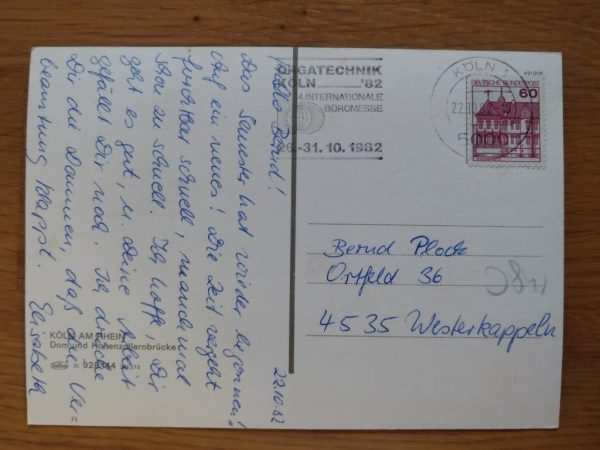 22.10.82
Hallo Bernd!
Das Semester hat wieder begonnen!
Auf ein neues! Die Zeit vergeht
furchtbar schnell, manchmal
schon zu schnell. Ich hoffe Dir
geht es gut, u. Deine Arbeit
gefällt Dir noch. Ich drücke
Dir die Daumen, daß die Ver=
beamtung klappt. Elisabeth
KÖLN AM RHEIN
Dom und Hohenzollernbrücke
ORGATECHNIK
KÖLN '82
4. INTERNATIONALE
BÜROMESSE
26-31. 10. 1982
KÖLN
5000
DEUTSCHE BUNDESPOST
60
Bernd Plock
Ortfeld 36
4535 Westerkappeln